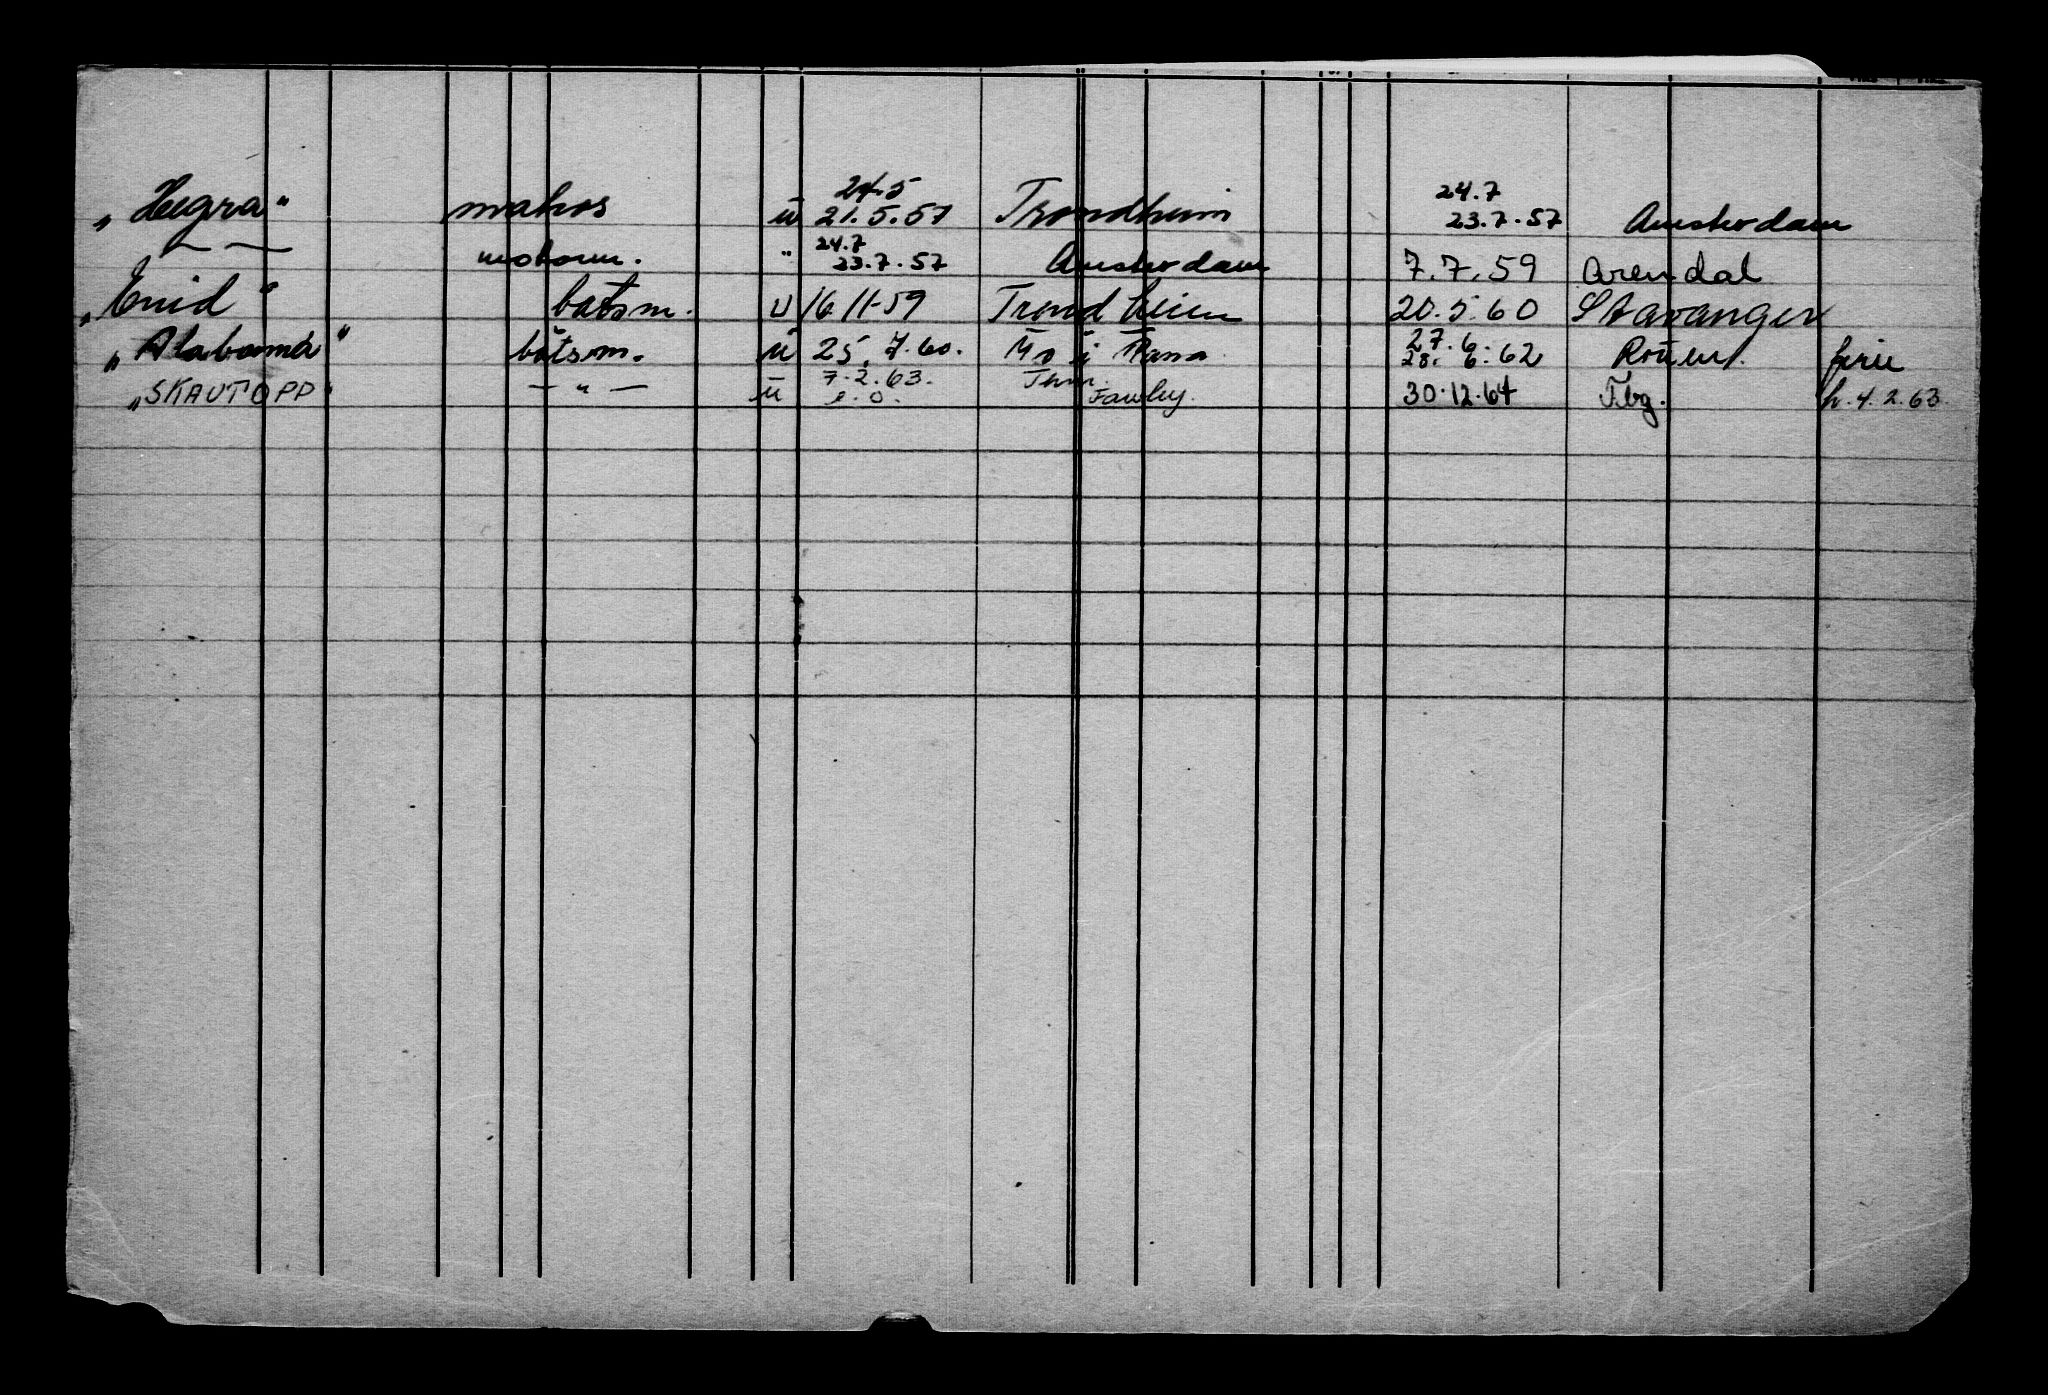 „Hegra" matros ū 24.5 21.5.57 Trondheim 24.7 23.7.57 Amsterdam
— — motorm. " 24.7 23.7.57 Amsterdam 7.7.59 Arendal
„Enid" båtsm. u 16.11-59 Trondheim 20.5.60 Stavanger
„Alabama" båtsm. ū 25.7.60. Mo i Rana 27.6. 28.6.62 Rouen. ferie
„SKAUTOPP" — " — ū 7.2.63. Fawley. 30.12.64 Tbg. h.4.2.63.